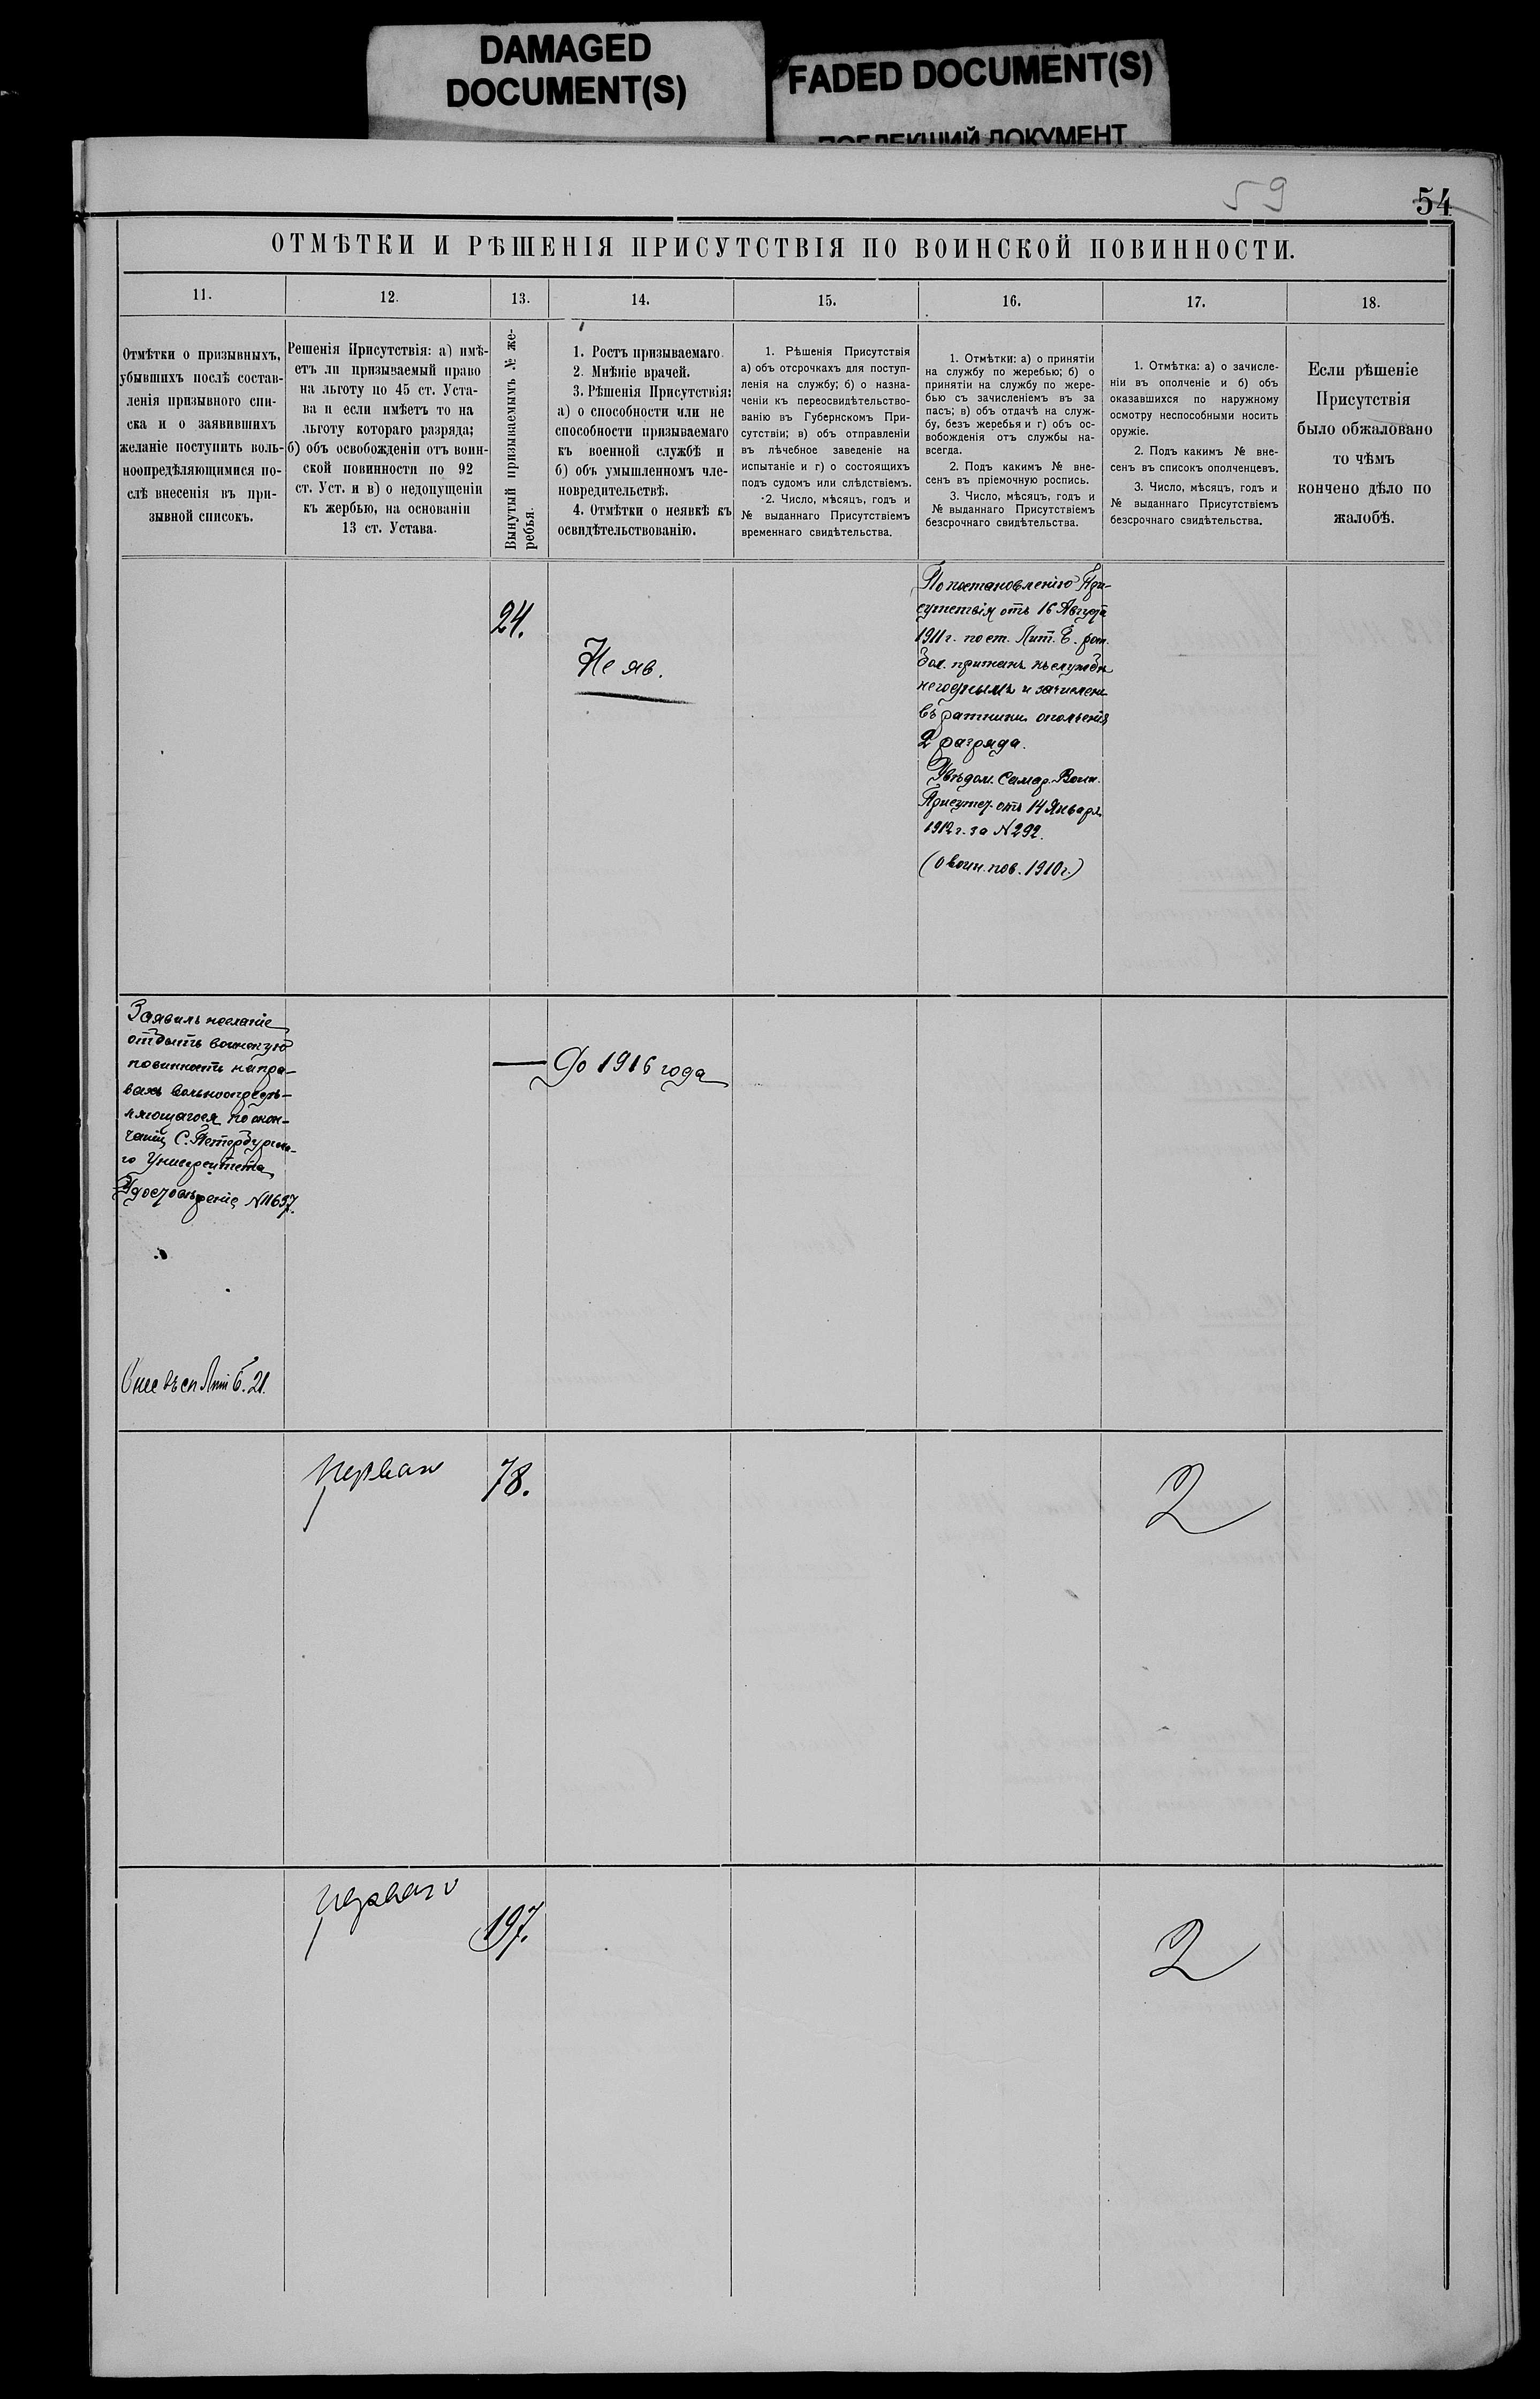 DAMAGED
DOCUMENT(S)
FADED DOCUMENT(S)
ПОБЛЕКШИЙ ДОКУМЕНТ
59
54
ОТМѢТКИ И РѢШЕНІЯ ПРИСУТСТВІЯ ПО ВОИНСКОЙ ПОВИННОСТИ.
11.
Отмѣтки о призывныхъ,
убывшихъ послѣ состав-
ленія призывного спи-
ска и о заявившихъ
желаніе поступить воль-
ноопредѣляющимися по-
слѣ внесенія въ при-
зывной списокъ.
12.
Решенія Присутствія: а) имѣ-
етъ ли призываемый право
на льготу по 45 ст. Уста-
ва и если имѣетъ то на
льготу котораго разряда;
б) объ освобожденіи отъ воин-
ской повинности по 92
ст. Уст. и в) о недопущеніи
къ жербью, на основаніи
13 ст. Устава.
13.
Вынутый призываемымъ № же-
ребья.
14.
1. Ростъ призываемаго.
2. Мнѣніе врачей.
3. Рѣшенія Присутствія:
а) о способности или не
способности призываемаго
къ военной службѣ и
б) объ умышленномъ чле-
новредительствѣ.
4. Отмѣтки о неявкѣ къ
освидѣтельствованію.
15.
1. Рѣшенія Присутствія
а) объ отсрочкахъ для поступ-
ленія на службу; б) о назна-
ченіи къ переосвидѣтельство-
ванію въ Губернскомъ При-
сутствіи; в) объ отправленіи
въ лѣчебное заведеніе на
испытаніе и г) о состоящихъ
подъ судомъ или слѣдствіемъ.
2. Число, мѣсяцъ, годъ и
№ выданнаго Присутствіемъ
временнаго свидѣтельства.
16.
1. Отмѣтки: а) о принятіи
на службу по жеребью; б) о
принятіи на службу по жере-
бью съ зачисленіемъ въ за
пасъ; в) объ отдачѣ на служ-
бу, безъ жеребья и г) объ ос-
вобожденія отъ службы на-
всегда.
2. Подъ какимъ № вне-
сенъ въ пріемочную роспись.
3. Число, мѣсяцъ, годъ и
№ выданнаго Присутствіемъ
безсрочнаго свидѣтельства.
17.
1. Отмѣтка: а) о зачисле-
ніи въ ополченіе и б) объ
оказавшихся по наружному
осмотру неспособными носить
оружіе.
2. Подъ какимъ № вне-
сенъ въ списокъ ополченцевъ.
3. Число, мѣсяцъ, годъ и
№ выданнаго Присутствіемъ
безсрочнаго свидѣтельства.
18.
Если рѣшеніе
Присутствія
было обжаловано
то чѣмъ
кончено дѣло по
жалобѣ.
24.
Не яв.
По постановленію При-
сутствія отъ 16 Августа
1911 г. по ст. Лит. Е.
признанъ къ службѣ
негоднымъ и зачисленъ
въ ратники ополченія
2 разряда.
Увѣдом. Самар. Воин.
Присутст. отъ 14 Января
1912 г. за N 292.
(О воин. пов. 1910 г.)
Заявилъ желаніе
отбыть воинскую
повинность на пра-
вахъ вольноопредѣ-
ляющагося по окон-
чаніи С. Петербургска-
го Университета
Удостовѣреніе N 11697.
— До 1916 года
Внес въ сп Лит Б. 21.
первая
78.
2
первая
197.
2